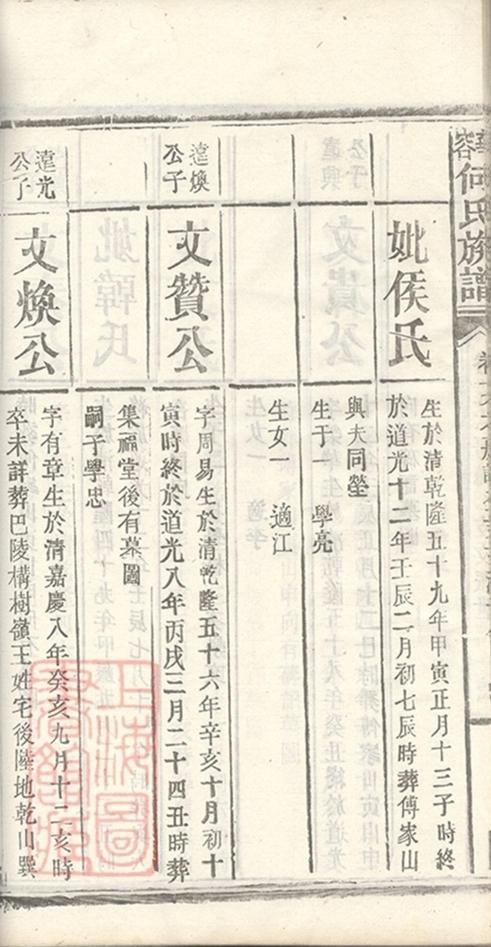 華容何氏族譜
妣侯氏
生於清乾隆五十九年甲寅正月十三子時終
於道光十二年壬辰二月初七辰時葬傅家山
與夫同塋
生子一　學亮
生女一　適江
遠煥
公子
文贊公
字周易生於清乾隆五十六年辛亥十月初十
寅時終於道光八年丙戌三月二十四丑時葬
集福堂後有墓圖
嗣子學忠
遠光
公子
文煥公
字有章生於清嘉慶八年癸亥九月十二亥時
卒未詳葬巴陵構樹嶺王姓宅後陸地乾山巽